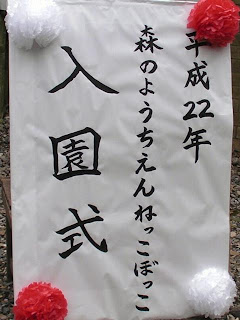 平成22年
森のようちえんねっこぼっこ
入園式